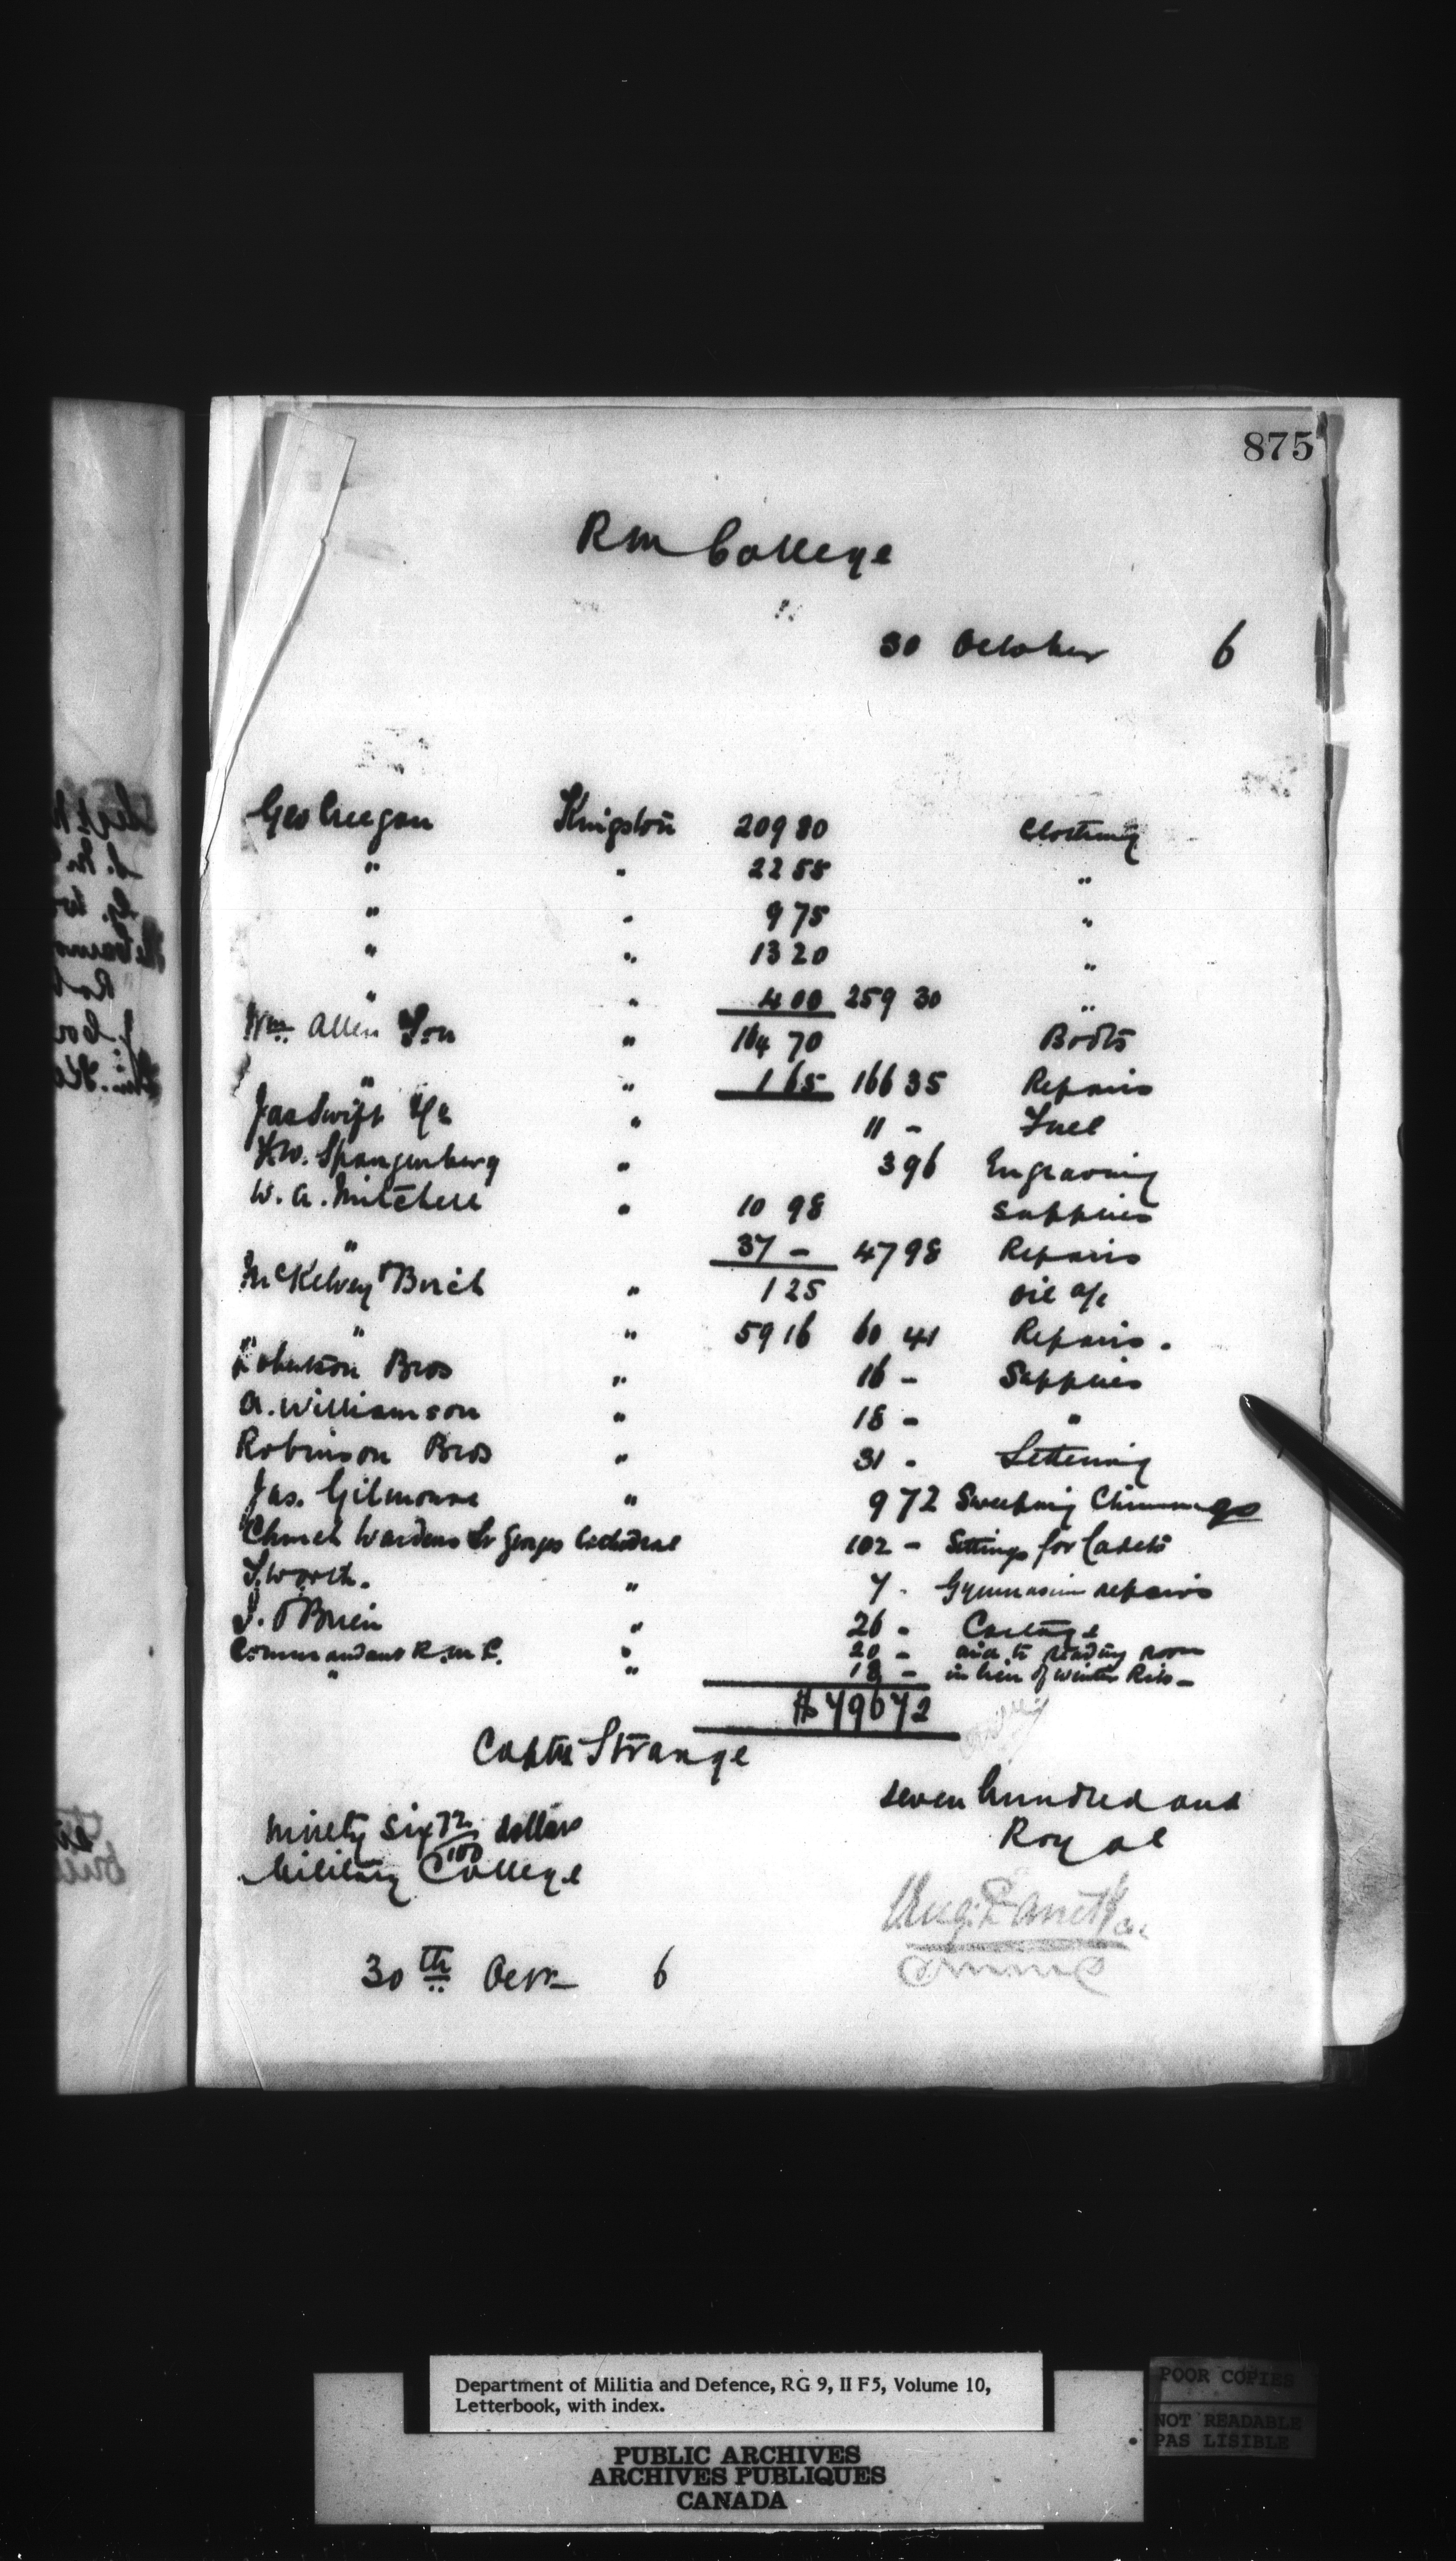 875
RM College
30 October 6
Geo Creegan Kingston 209 80 Clothing
" " 22 55 "
" " 9 75 "
" " 13 20 "
" " 4 00 259 30 "
Wm Allen & Son " 164 70 Boots
" " 1 65 166 35 Repairs
Jas Swift & Co " 11 - Fuel
F.W. Spangenberg " 3 96 Engraving
W. A. Mitchell " 10 98 Supplies
" " 37 - 47 98 Repairs
McKelvey & Birch " 1 25 Oil a/c
" " 59 16 60 41 Repairs.
Robertson Bros " 16 - Supplies
A. Williamson " 18 - "
Robinson Bros " 31 - Lettering
Jas. Gilmour " 9 72 Sweeping Chimneys
Church Wardens St Georges Cathedral 102 - Sittings for Cadets
T. Worth. " 7 - Gymnasium repairs
J. O'Brien " 26 - Cartage
Commandant R.M.C. " 20 - aid to reading room
" " 18 - in lieu of Winter
$ 796 72
Captn Strange
seven hundred and
ninety six 72/100 dollars
Royal
Military College
30th Octr 6
Department of Militia and Defence, RG 9, II F5, Volume 10,
Letterbook, with index.
PUBLIC ARCHIVES
ARCHIVES PUBLIQUES
CANADA
POOR COPIES
NOT READABLE
PAS LISIBLE